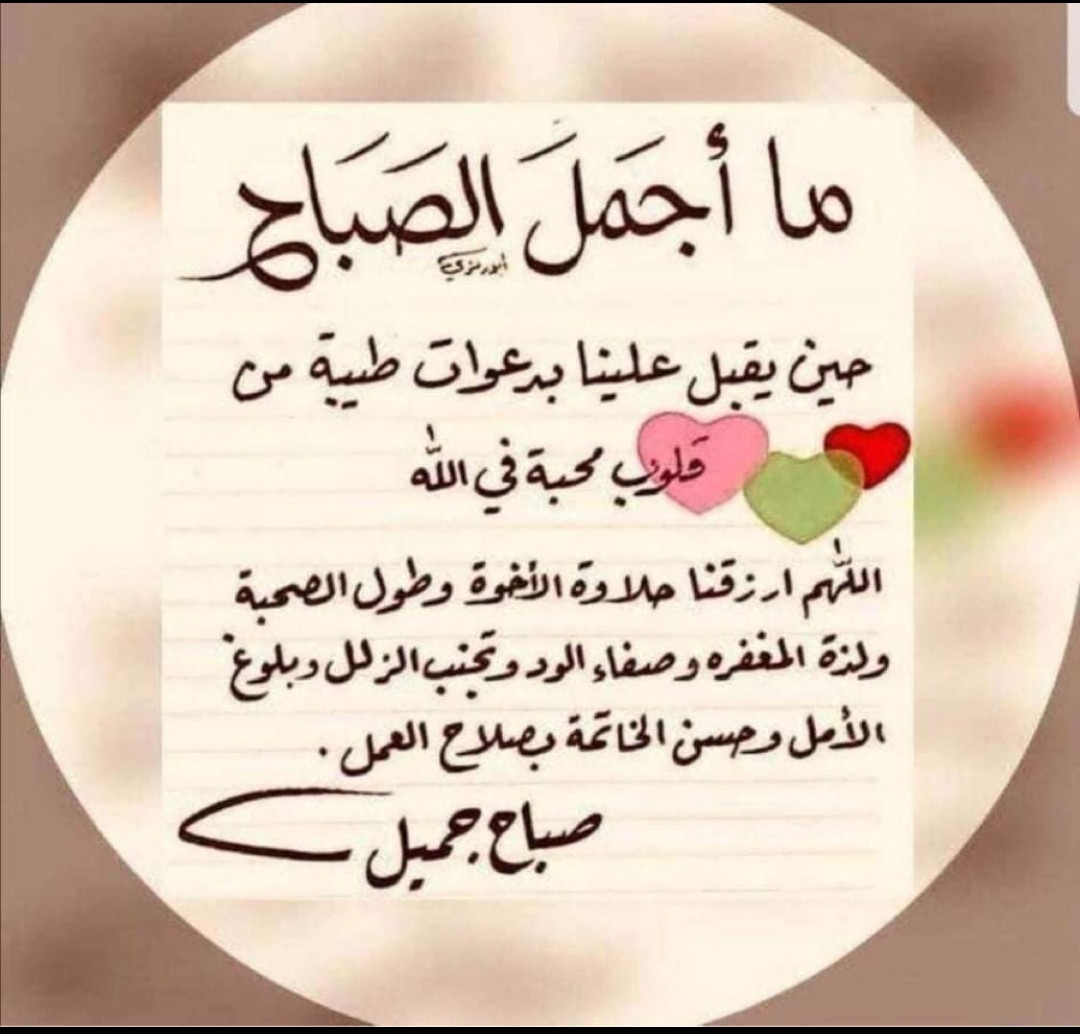 ما أجمَلَ الصَبَاح
أبو رمزي
حين يقبل علينا بدعوات طيبة من
قلوب محبة في الله
اللهم ارزقنا حلاوة الأخوة وطول الصحبة
ولذة المغفره وصفاء الود وتجنب الزلل وبلوغ
الأمل وحسن الخاتمة بصلاح العمل .
صباح جميل